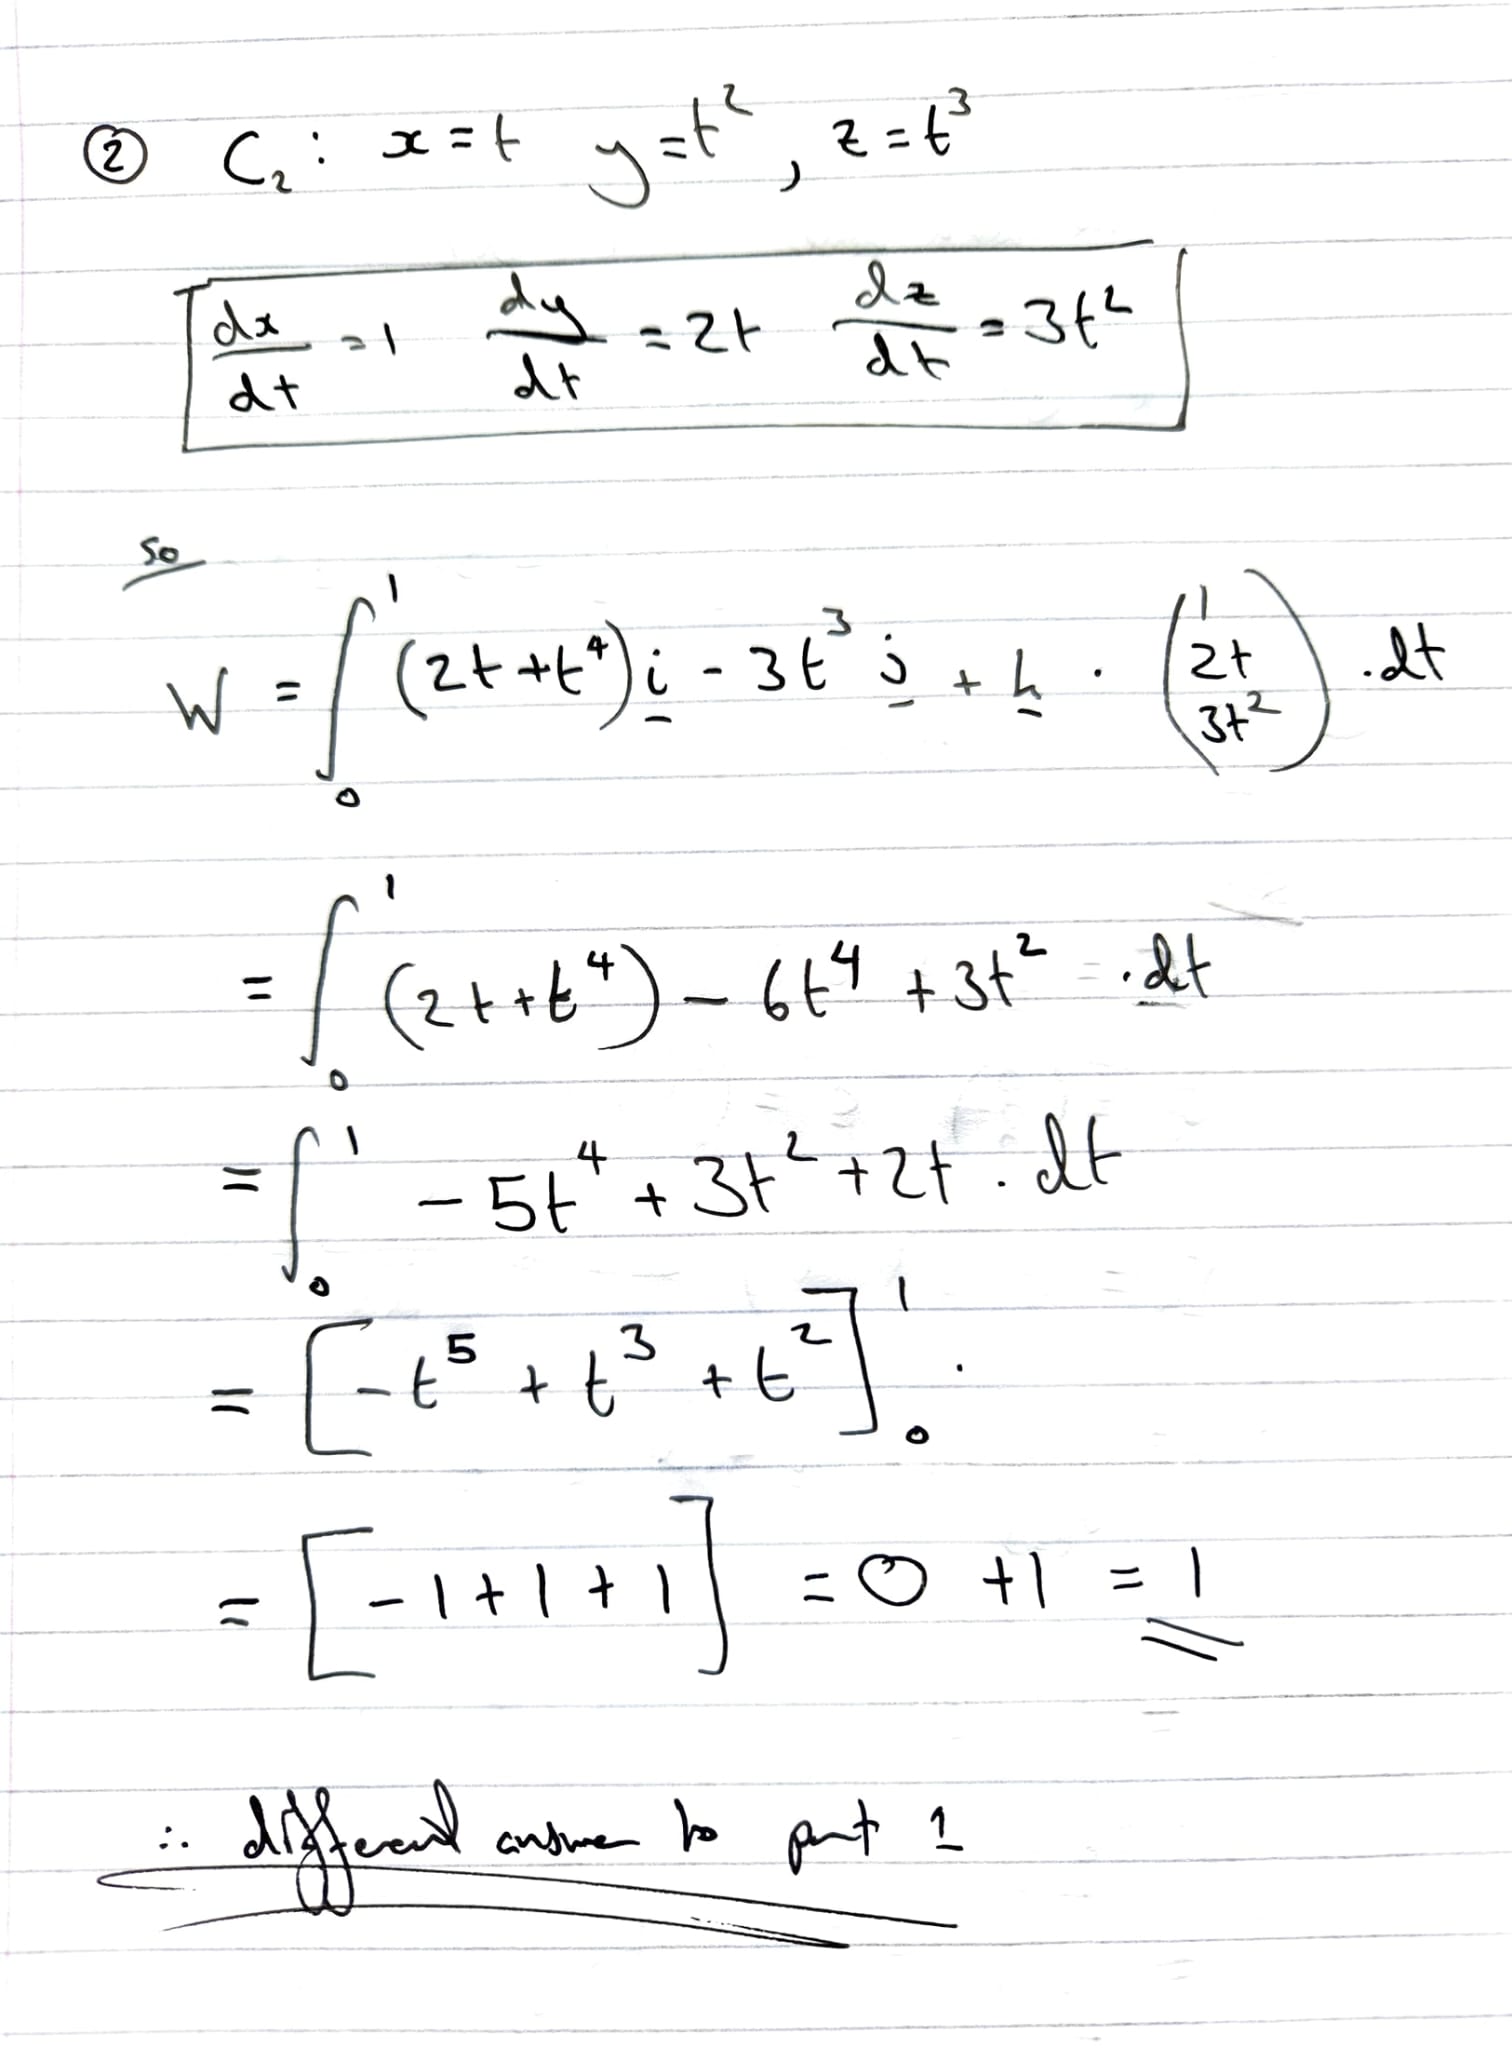 ② C₂: x = t y = t², z = t³
dx/dt = 1 dy/dt = 2t dz/dt = 3t²
so
W = ∫₀¹ (2t + t⁴) i - 3t³ j + k · (1 2t 3t²) . dt
= ∫₀¹ (2t + t⁴) - 6t⁴ + 3t² . dt
= ∫₀¹ - 5t⁴ + 3t² + 2t . dt
= [-t⁵ + t³ + t²]₀¹ .
= [-1 + 1 + 1] = 0 + 1 = 1
∴ different answer to part 1